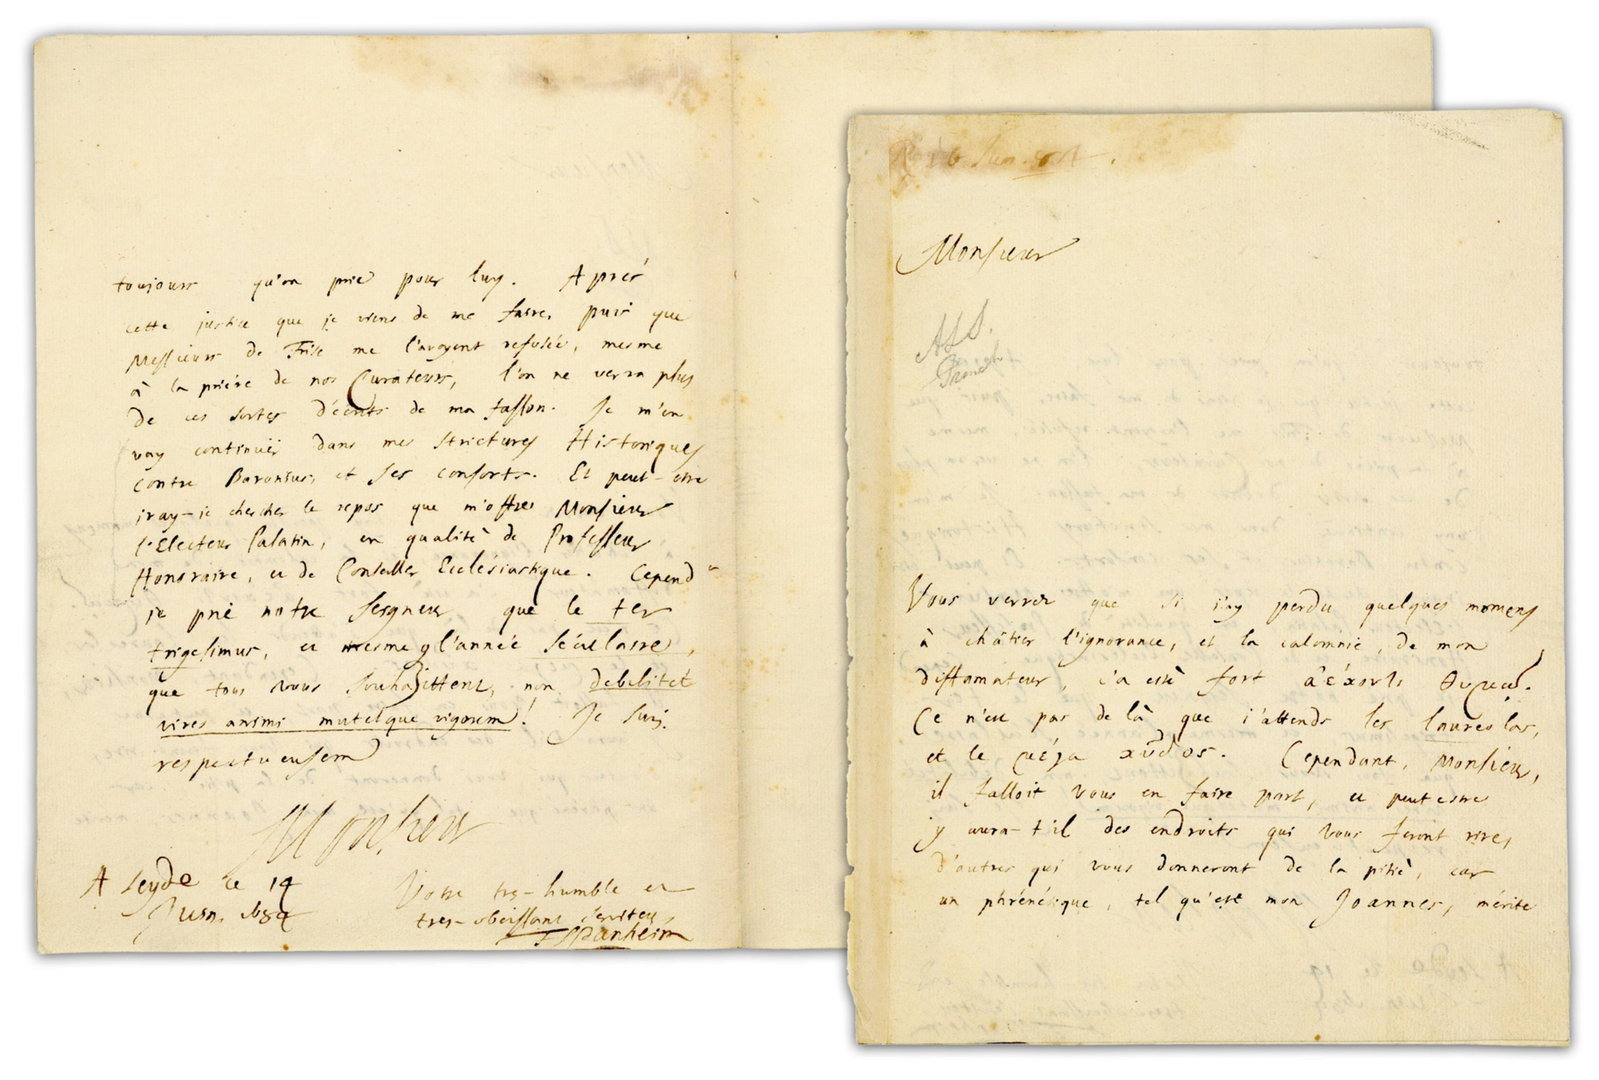 Monsieur
ALS.
French
Vous verrez que si j'ay perdu quelques momens
à châtier l'ignorance, et la calomnie, de mon
diffamateur, ç'a esté fort
Ce n'est pas de là que j'attends les laureolas,
et le μέγα κῦδος. Cependant, Monsieur,
il falloit vous en faire part, et peut estre
y aura-t'il des endroits qui vous feront rire,
d'autres qui vous donneront de la pitié, car
un phrénétique, tel qu'est mon Joannes, mérite
toujours qu'on prie pour luy. Aprés
cette justice que je viens de me faire, puis que
Messieurs de Frise me l'avoyent refusée, mesme
à la priére de nos Curateurs, l'on ne verra plus
de ces sortes d'écrits de ma fasson. Je m'en
vay continuër dans mes Strictures Historiques
contre Baronius, et ses consorts. Et peut-etre
iray-je chercher le repos que m'offre Monsieur
l'Electeur Palatin, en qualité de Professeur
Honoraire, et de Conseiller Ecclésiastique. Cepend
je prie notre Seigneur que le ter
trigesimus, et mesme l'année séculaire,
que tous vous souhaittent, non debilitet
vires animi mutetque vigorem! Je suis
respectueusem
Monsieur
Votre tres-humble et
tres-obeissant serviteur
F Spanheim
A Leyde le 14
Juin. 1684